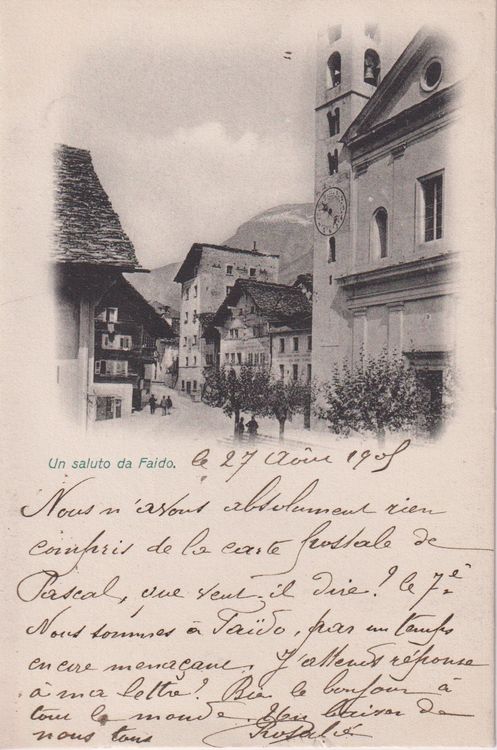 Un saluto da Faido. le 27 Août 1905
Nous n'avons absolument rien
compris de la carte postale de
Pascal, que veut-il dire? le 7e
Nous sommes à Faïdo, par un temps
encore menaçant. J'attends réponse
à ma lettre? Bien le bonjour à
tout le monde. Un baiser de
nous tous Rosalie